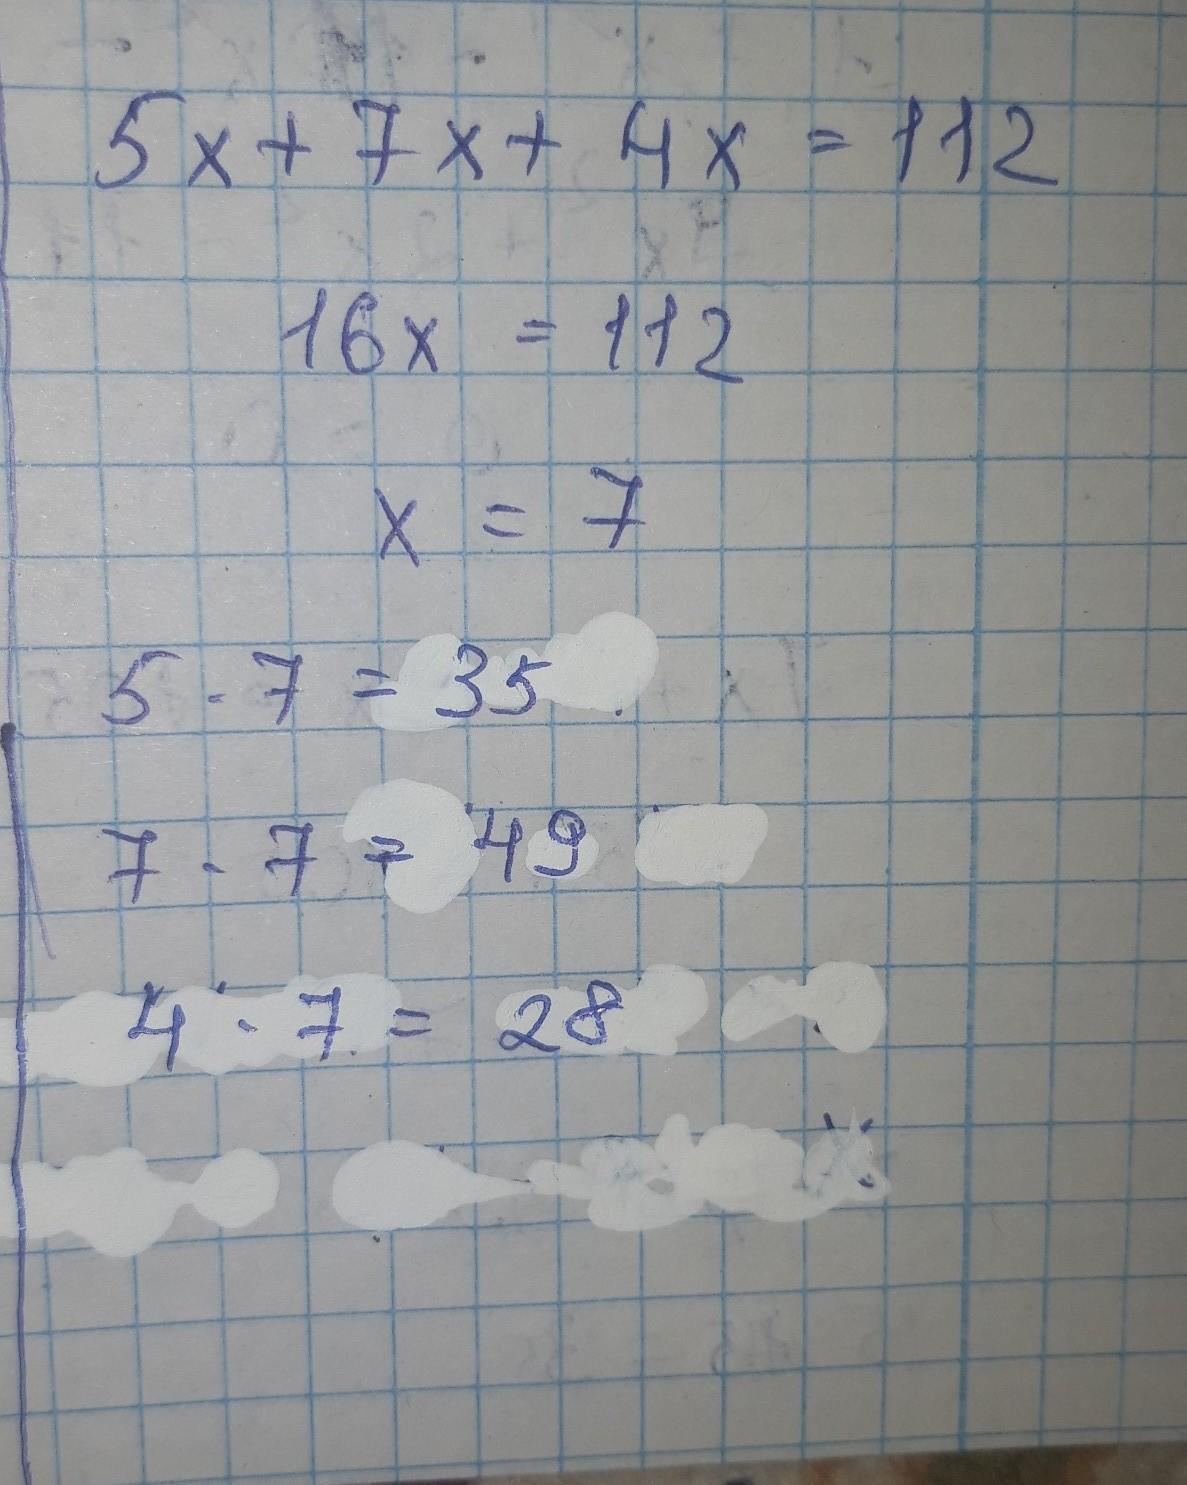 5x + 7x + 4x = 112
16x = 112
x = 7
5 · 7 = 35
7 · 7 = 49
4 · 7 = 28